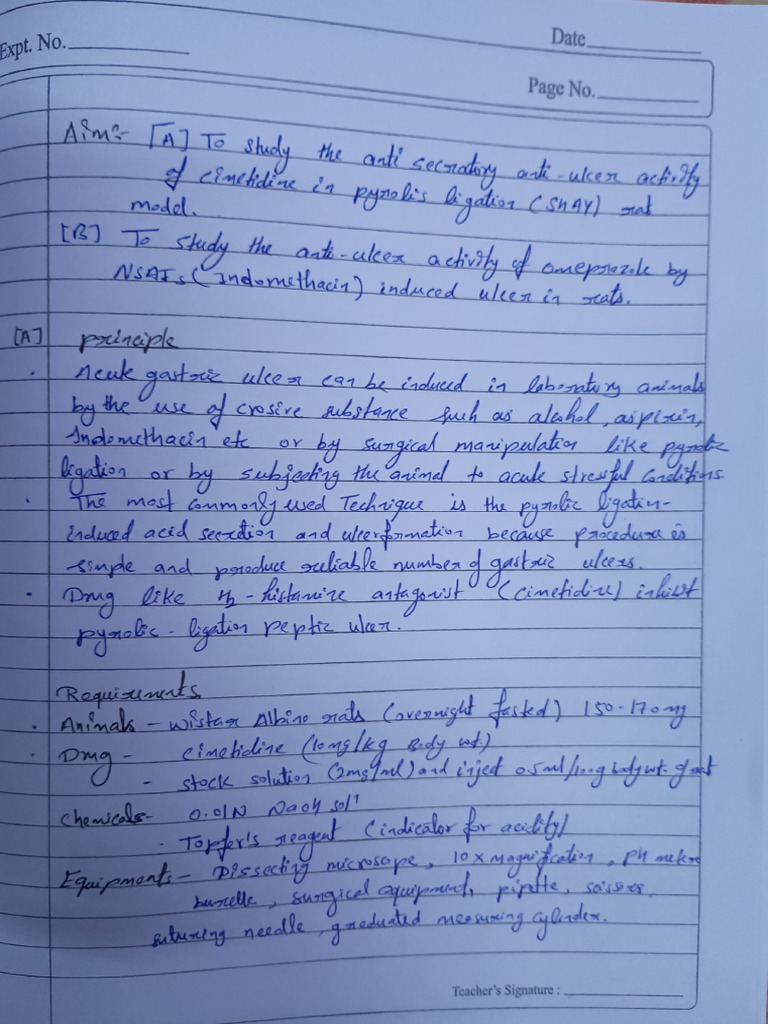 Expt. No.
Date
Page No.
Aim:- [A] To study the anti secratory anti-ulcer activity
of cimetidine in pyrolis ligation (SHAY) rat
model.
[B] To study the anti-ulcer activity of omeprazole by
NSAIs (Indomethacin) induced ulcer in rats.
[A] principle
. Acute gastric ulcer can be induced in laboratory animals
by the use of erosive substance such as alcohol, aspirin,
Indomethacin etc or by surgical manipulation like pyrolic
ligation or by subjecting the animal to acute stressful conditions
. The most commonly used Technique is the pyrolic ligation-
induced acid secretion and ulcerformation because procedure is
simple and produce reliable number of gastric ulcers.
. Drug like H2-histamine antagonist (cimetidine) inhibit
pyrolic-ligation peptic ulcer.
Requirements
. Animals - wistar Albino rats (overnight fasted) 150-170mg
. Drug - cimetidine (10mg/kg Body wt)
- stock solution (2mg/ml) and inject 0.5ml/100g body wt. of rat
Chemicals- 0.01N NaOH sol^n
- Topfer's reagent (indicator for acidity)
Equipments - Dissecting microscope, 10x magnification, pH meter
burette, surgical equipment, pipette, scissors,
suturing needle, graduated measuring cylinder.
Teacher's Signature :